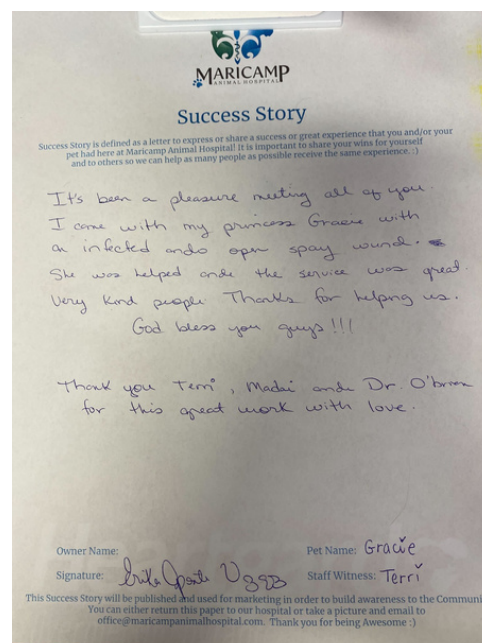 MARICAMP
ANIMAL HOSPITAL
Success Story
Success Story is defined as a letter to express or share a success or great experience that you and/or your
pet had here at Maricamp Animal Hospital! It is important to share your wins for yourself
and to others so we can help as many people as possible receive the same experience. :)
It's been a pleasure meeting all of you.
I come with my princess Gracie with
an infected ando open spay wund.
She was helped ande the service was great.
Very Kind people. Thanks for helping us.
God bless you guys!!!
Thank you Terri, Madai ande Dr. O'brien
for this great work with love.
Owner Name:
Pet Name: Gracie
Signature:
Staff Witness: Terri
This Success Story will be published and used for marketing in order to build awareness to the Communi
You can either return this paper to our hospital or take a picture and email to
office@maricampanimalhospital.com. Thank you for being Awesome :)